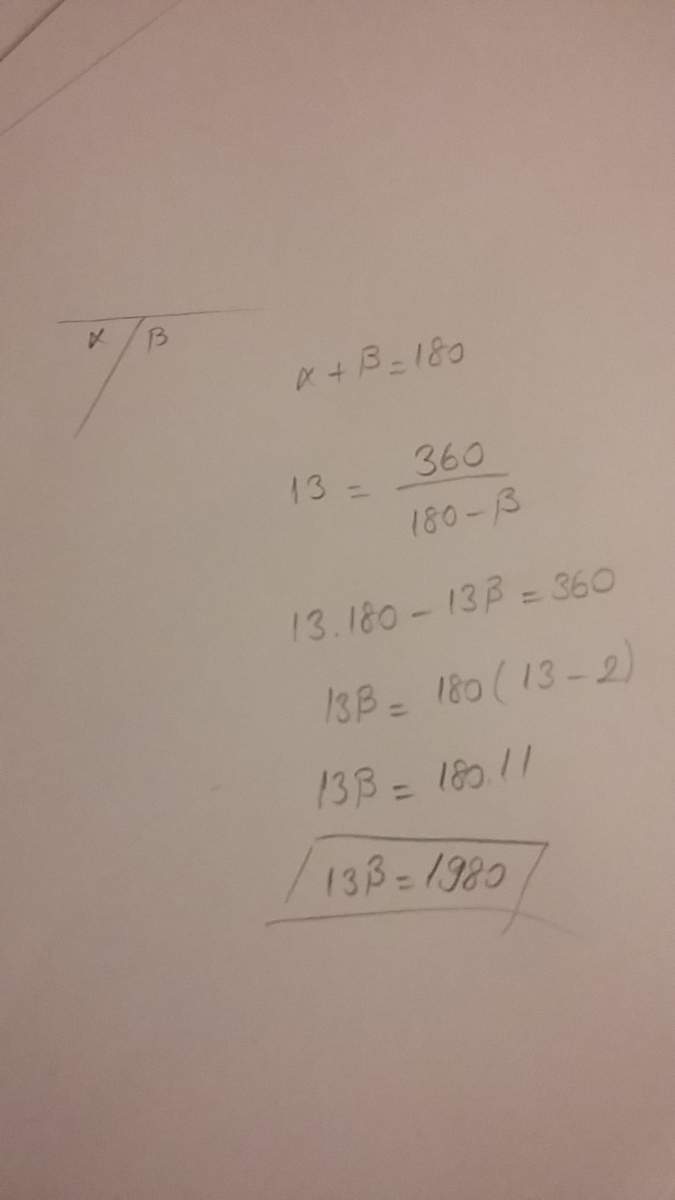 α β
α + β = 180
13 = 360 / 180 - β
13.180 - 13β = 360
13β = 180(13-2)
13β = 180.11
13β = 1980